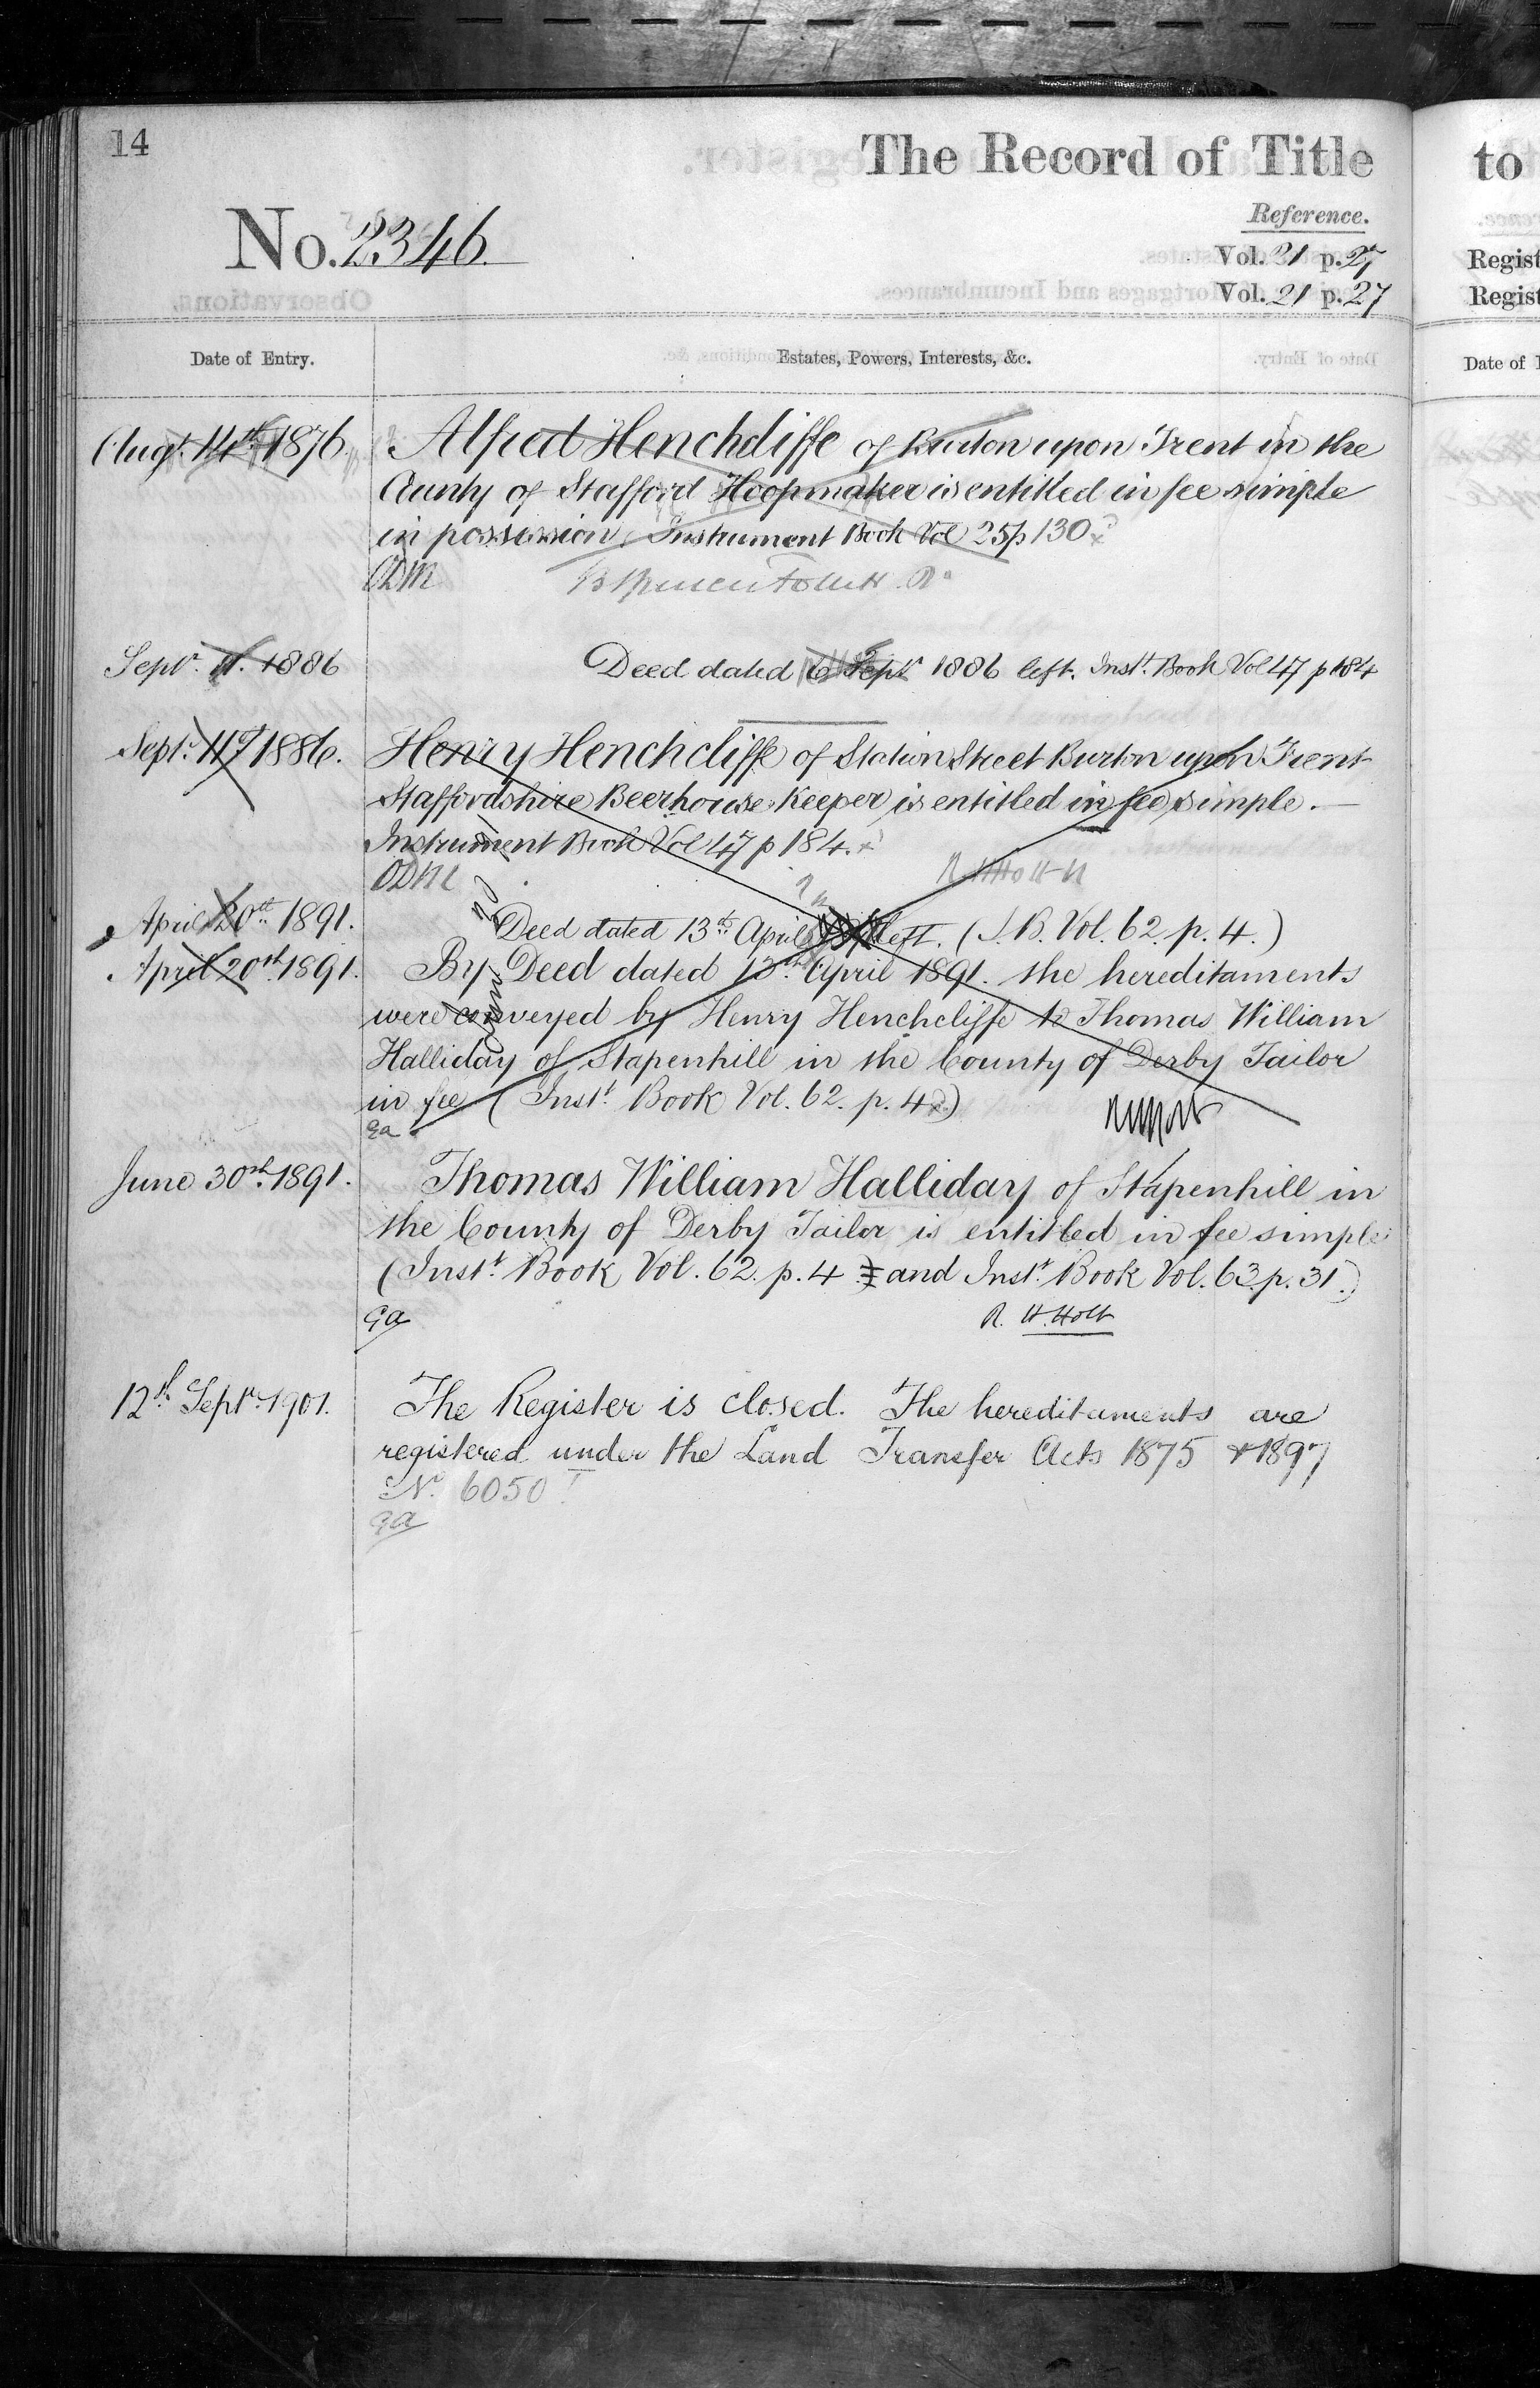 14
The Record of Title
to
No. 2346.
Reference.
Vol. 21 p. 27
Regist
Vol. 21 p. 27
Regist
Date of Entry.
Estates, Powers, Interests, &c.
Date of
Augt. 14th 1876.
Alfred Henchcliffe of Burton upon Trent in the
County of Stafford Hoopmaker is entitled in fee simple
in possession. Instrument Book Vol 25 p 130
ODM
Septr. 11. 1886
Deed dated 6 Septr 1886 left. Inst. Book Vol 47 p 184
Septr. 11th 1886.
Henry Henchcliffe of Station Street Burton upon Trent
Staffordshire Beerhouse Keeper is entitled in fee simple.
Instrument Book Vol 47 p 184.
ODM
R. H. Holt
April 20th 1891.
Deed dated 13th April 1891 left. (I. B. Vol. 62. p. 4.)
April 20th 1891.
By Deed dated 13th April 1891. the hereditaments
were conveyed by Henry Henchcliffe to Thomas William
Halliday of Stapenhill in the County of Derby Tailor
in fee (Instt. Book Vol. 62. p. 4)
ga
June 30th 1891.
Thomas William Halliday of Stapenhill in
the County of Derby Tailor is entitled in fee simple
(Instt. Book Vol. 62. p. 4 and Instt. Book Vol. 63. p. 31.)
ga
R. H. Holt
12th Septr. 1901.
The Register is closed. The hereditaments are
registered under the Land Transfer Acts 1875 & 1897
No. 6050
ga